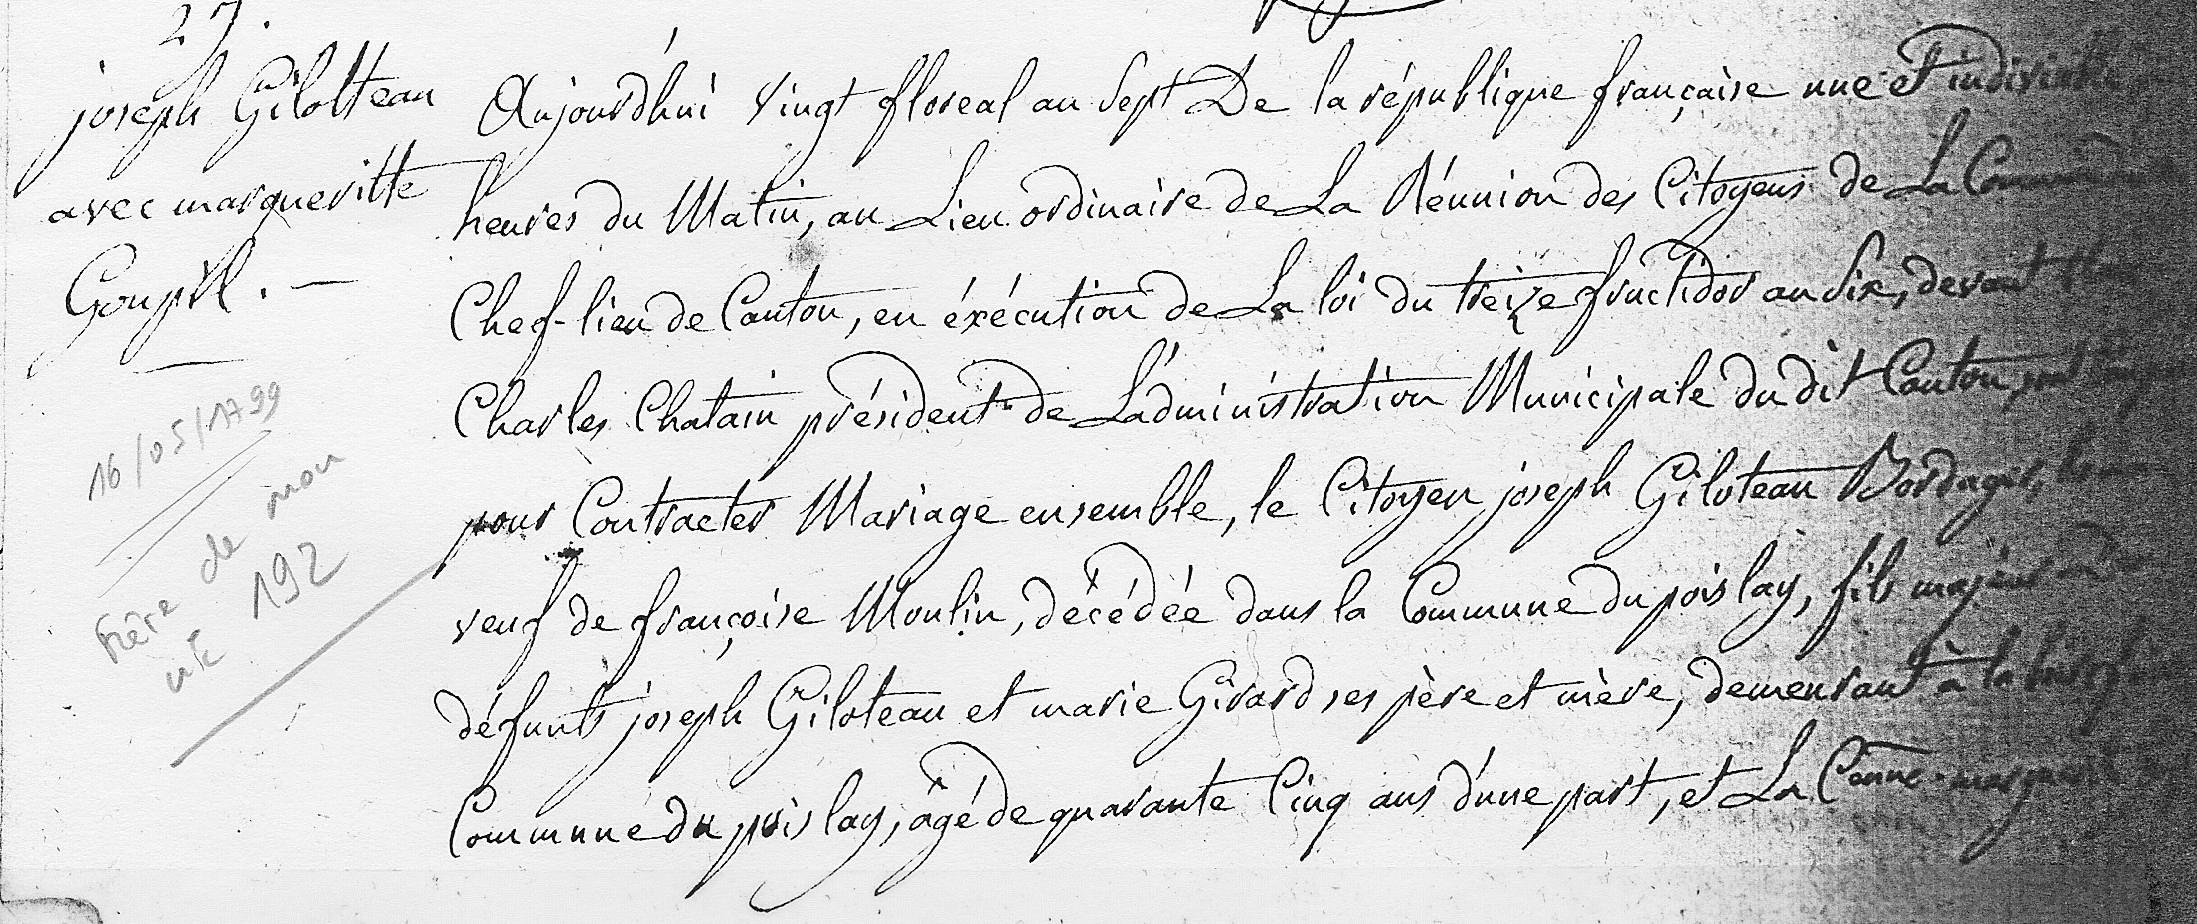 27
joseph Gilotteau
avec margueritte
Goupil. —
16/05/1799
Frère de mon
n° 192
Aujourd'hui vingt floreal an sept De la république française une et indivisible
heures du Matin, au Lieu ordinaire de La Réunion des Citoyens de La Commune
Chef-lieu de Canton, en éxécution de La loi du treize fructidor an six, devant
Charles Chatain président de L'administration Municipale du dit Canton,
pour Contracter Mariage ensemble, le Citoyen joseph Giloteau Bordager,
veuf de françoise Moulin, décédée dans la Commune du poislay, fils majeur de
défunts joseph Giloteau et marie Girard ses père et mère, demeurant à la
Commune du poislay, âgé de quarante Cinq ans d'une part, et La Cenne